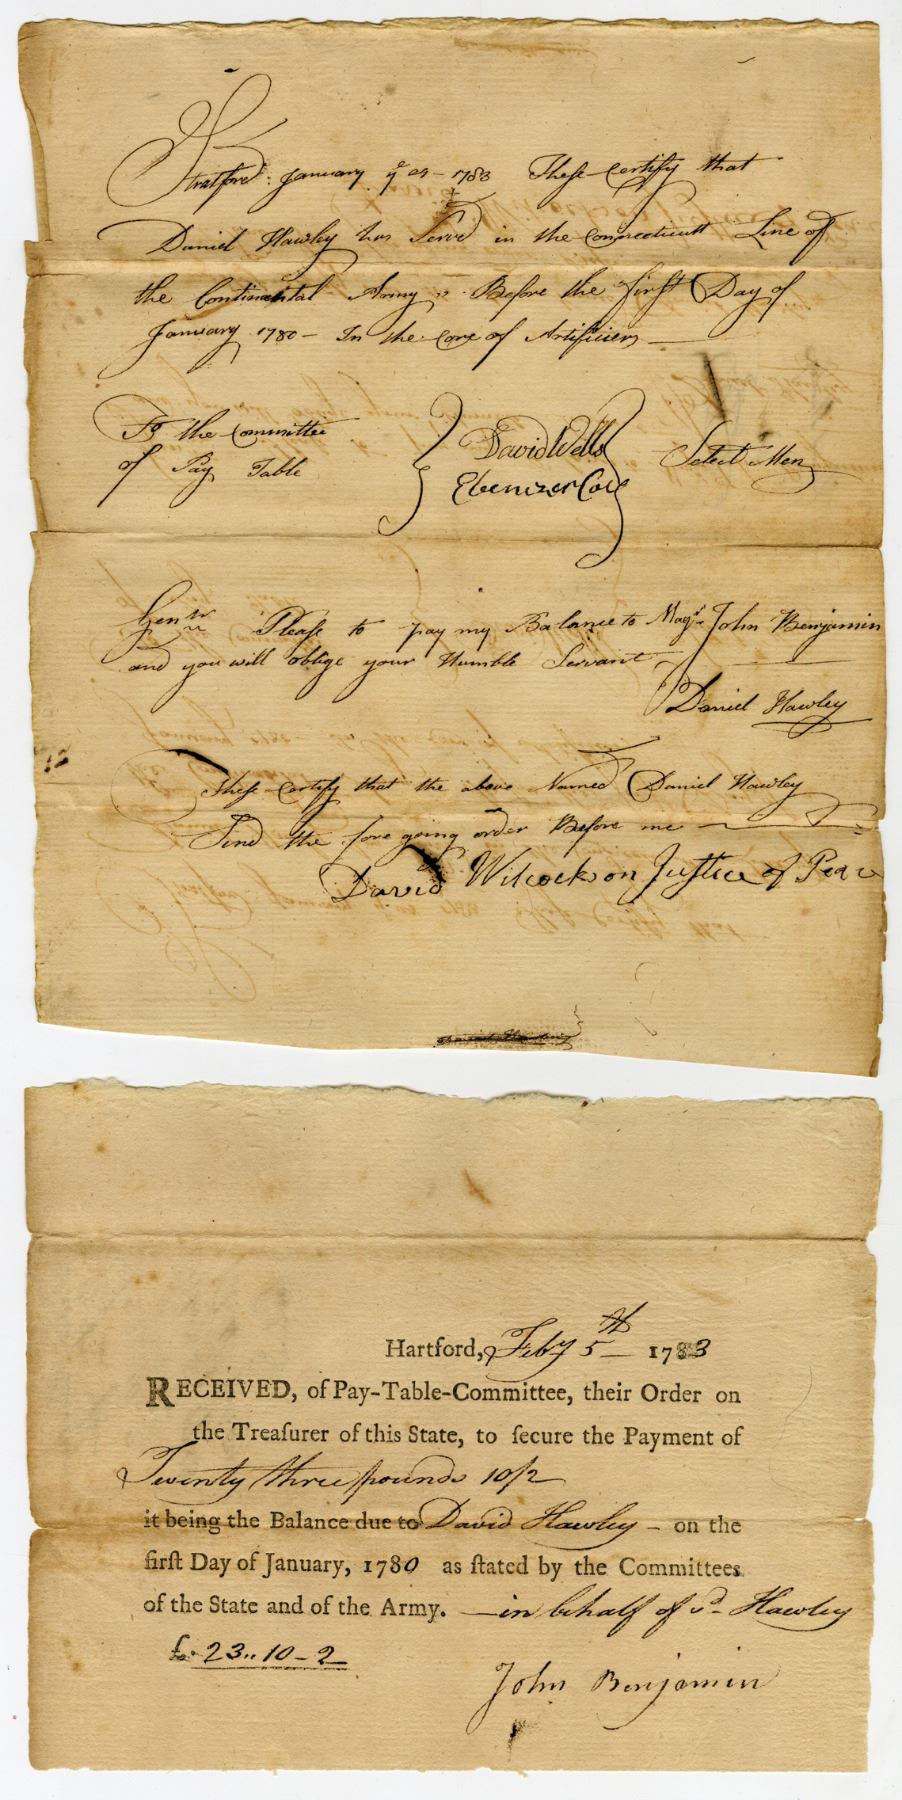 Stratford January ye 29 - 1783 These Certify that
Daniel Hawley has Served in the Connecticutt Line of
the Continental Army Before the first Day of
January 1780 - In the Core of Artificiers
To the Committee
of Pay Table
David Wells
Ebenezer Coe
Select Men
Gentn Please to pay my Balance to Majr John Benjamin
and you will oblige your Humble Servant
Daniel Hawley
12
These Certify that the above Named Daniel Hawley
Sind the fore going order Before me
David Wilcockson Justice of Peac
Hartford, Feby 5th - 1783
RECEIVED, of Pay-Table-Committee, their Order on
the Treasurer of this State, to secure the Payment of
Twenty three pounds 10/2
it being the Balance due to David Hawley - on the
first Day of January, 1780 as stated by the Committees
of the State and of the Army. - in behalf of sd Hawley
£ 23..10-2
John Benjamin